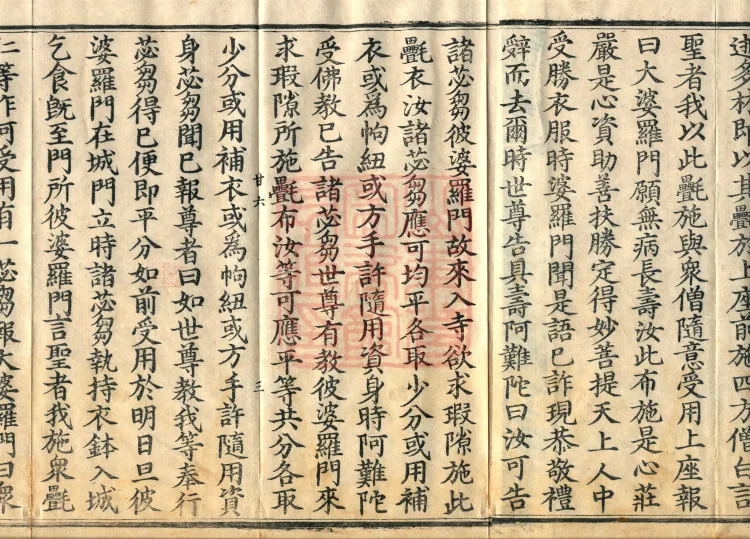 多林即以其氎施上座前施四方僧白言
聖者我以此氎施與衆僧隨意受用上座報
曰大婆羅門願無病長壽汝此布施是心莊
嚴是心資助善扶勝定得妙菩提天上人中
受勝衣服時婆羅門聞是語已詐現恭敬禮
辤而去爾時世尊告具壽阿難陀曰汝可告
諸苾芻彼婆羅門故來入寺欲求瑕隙施此
氎衣汝諸苾芻應可均平各取少分或用補
衣或爲㡇紐或方手許隨用資身時阿難陀
受佛教已告諸苾芻世尊有教彼婆羅門來
求瑕隙所施氎布汝等可應平等共分各取
廿六 三
少分或用補衣或爲㡇紐或方手許隨用資
身苾芻聞已報尊者曰如世尊教我等奉行
苾芻得已便即平分如前受用於明日旦彼
婆羅門在城門立時諸苾芻執持衣鉢入城
乞食旣至門所彼婆羅門言聖者我施衆氎
仁等作何受用有一苾芻報大婆羅門曰衆